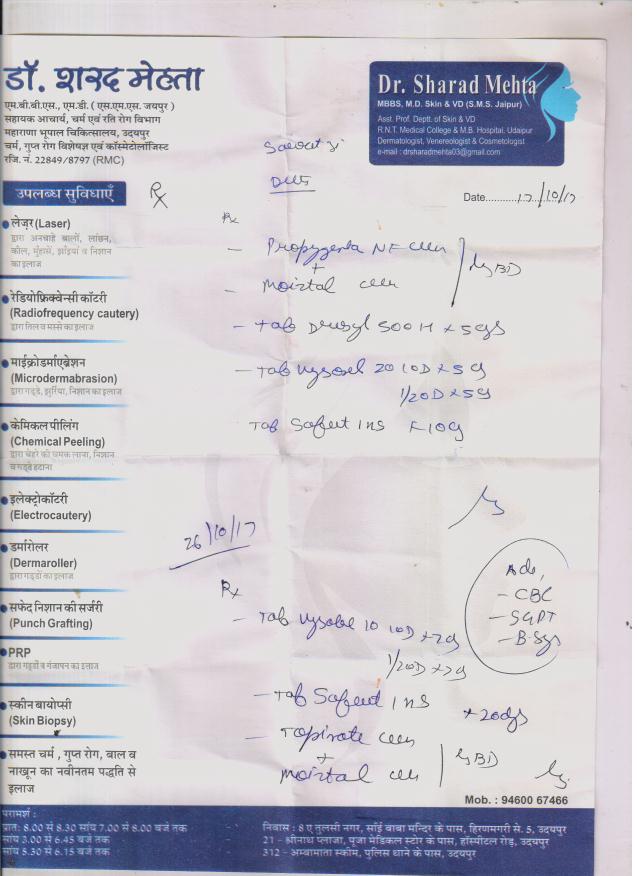 डॉ. शरद मेहता
एम.बी.बी.एस., एम.डी. ( एस.एम.एस. जयपुर )
सहायक आचार्य, चर्म एवं रति रोग विभाग
महाराणा भूपाल चिकित्सालय, उदयपुर
चर्म, गुप्त रोग विशेषज्ञ एवं कॉस्मेटोलॉजिस्ट
रजि. नं. 22849/8797 (RMC)
Dr. Sharad Mehta
MBBS, M.D. Skin & VD (S.M.S. Jaipur)
Asst. Prof. Deptt. of Skin & VD
R.N.T. Medical College & M.B. Hospital, Udaipur
Dermatologist, Venereologist & Cosmetologist
e-mail : drsharadmehta03@gmail.com
उपलब्ध सुविधाएँ
Rx
Date 17/10/17
लेज़र (Laser)
द्वारा अनचाहे बालों, लांछन,
कील, मुंहासे, झाइयां व निशान
का इलाज
रेडियोफ्रिक्वेन्सी कॉटरी
(Radiofrequency cautery)
द्वारा तिल व मस्से का इलाज
माईक्रोडर्माएब्रेशन
(Microdermabrasion)
द्वारा गड्डे, झुर्रिया, निशान का इलाज
केमिकल पीलिंग
(Chemical Peeling)
द्वारा चेहरे की चमक लाना, निशान
व गड्डे हटाना
इलेक्ट्रोकॉटरी
(Electrocautery)
डर्मारोलर
(Dermaroller)
द्वारा गड्डों का इलाज
सफेद निशान की सर्जरी
(Punch Grafting)
PRP
द्वारा गड्डों व गंजापन का इलाज
स्कीन बायोप्सी
(Skin Biopsy)
समस्त चर्म, गुप्त रोग, बाल व
नाखून का नवीनतम पद्धति से
इलाज
Rx
- NF
+
- Moiztal BD
- Tab 500
- Tab 20 10D x 5
1/2 OD x 5
Tab 1 HS
26/10/17
Rx
- Tab 10 10D
1/2 OD
- Tab 1 HS
- Topirate
+
Moiztal BD
Adv,
- CBC
- SGPT
- B. Sgr
Mob. : 94600 67466
परामर्श :
प्रात: 8.00 से 8.30 सांय 7.00 से 8.00 बजे तक
सांय 3.00 से 6.45 बजे तक
सांय 5.30 से 6.15 बजे तक
निवास : 8 ए तुलसी नगर, साँई बाबा मन्दिर के पास, हिरणमगरी से. 5, उदयपुर
21 - श्रीनाथ प्लाजा, पूजा मेडिकल स्टोर के पास, हॉस्पीटल रोड़, उदयपुर
312 - अम्बामाता स्कीम, पुलिस थाने के पास, उदयपुर